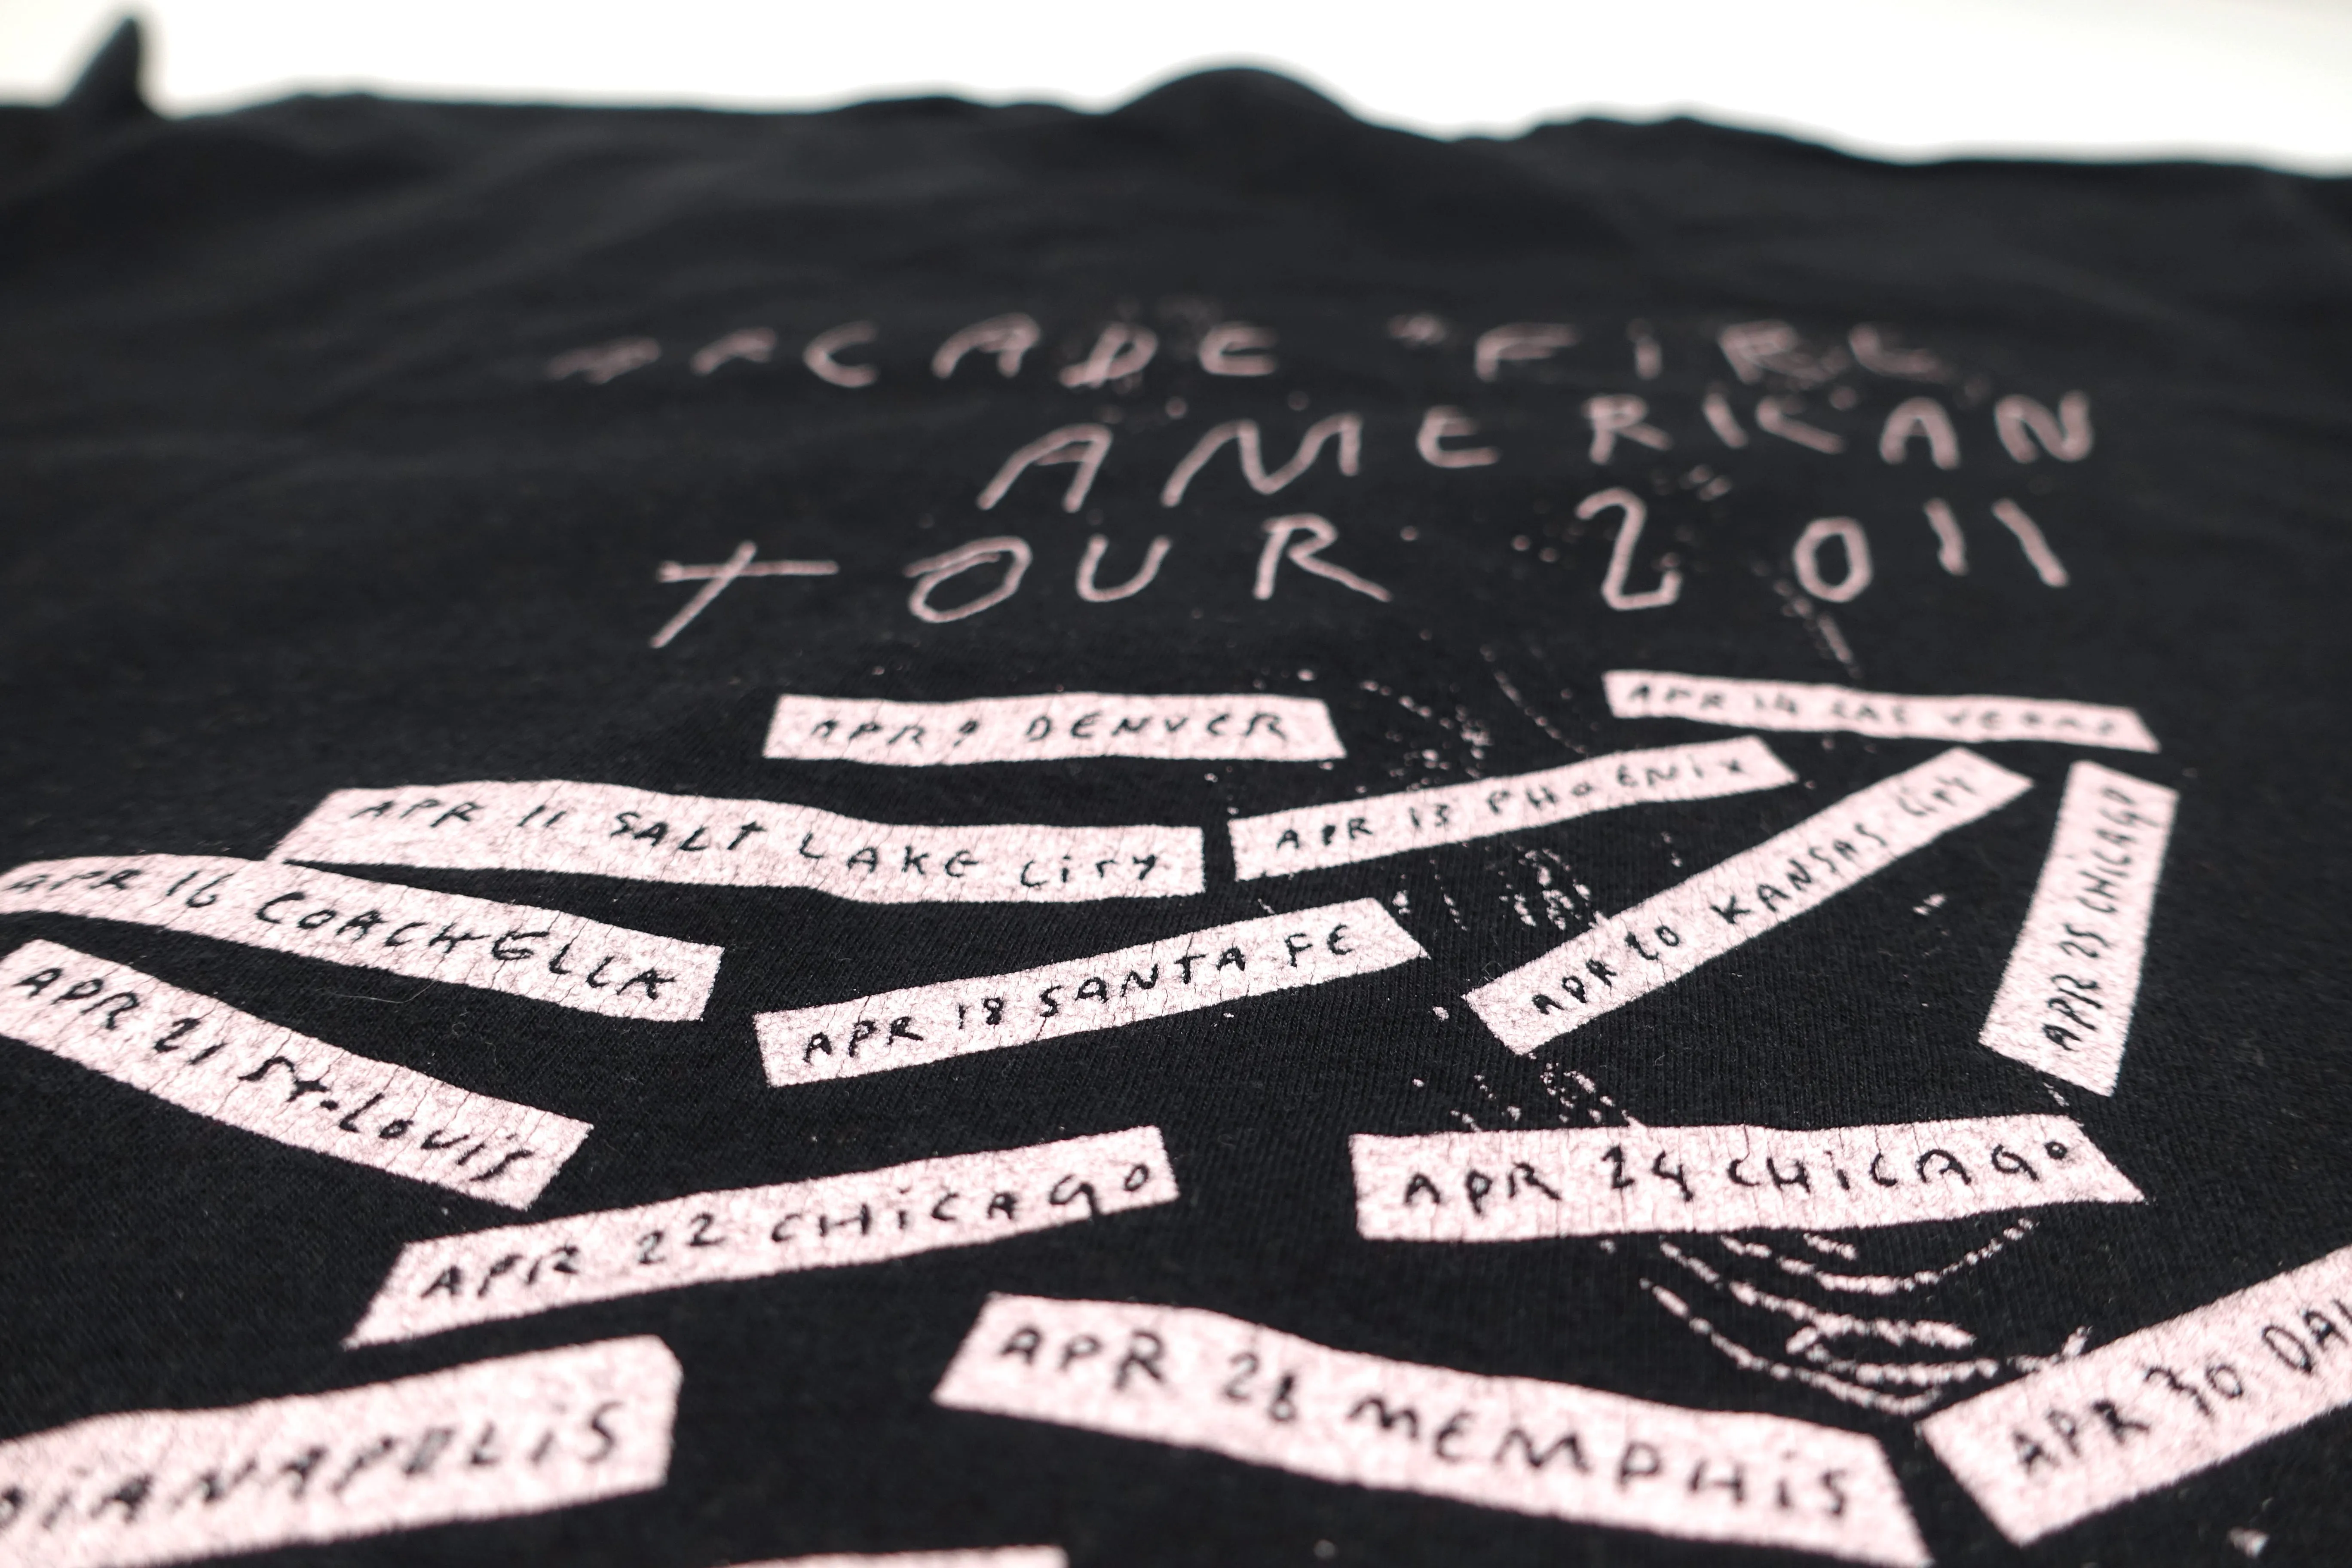 ARCADE FIRE
AMERICAN
TOUR 2011
APR 9 DENVER
APR 14 LAS VEGAS
APR 11 SALT LAKE CiTY
APR 13 PHOENIX
APR 20 KANSAS CiTY
APR 25 CHiCAGO
APR 16 COACHELLA
APR 18 SANTA FE
APR 21 ST-LOUiS
APR 22 CHiCAGO
APR 24 CHiCAGO
DiANAPOLiS
APR 28 MEMPHiS
APR 30 DA